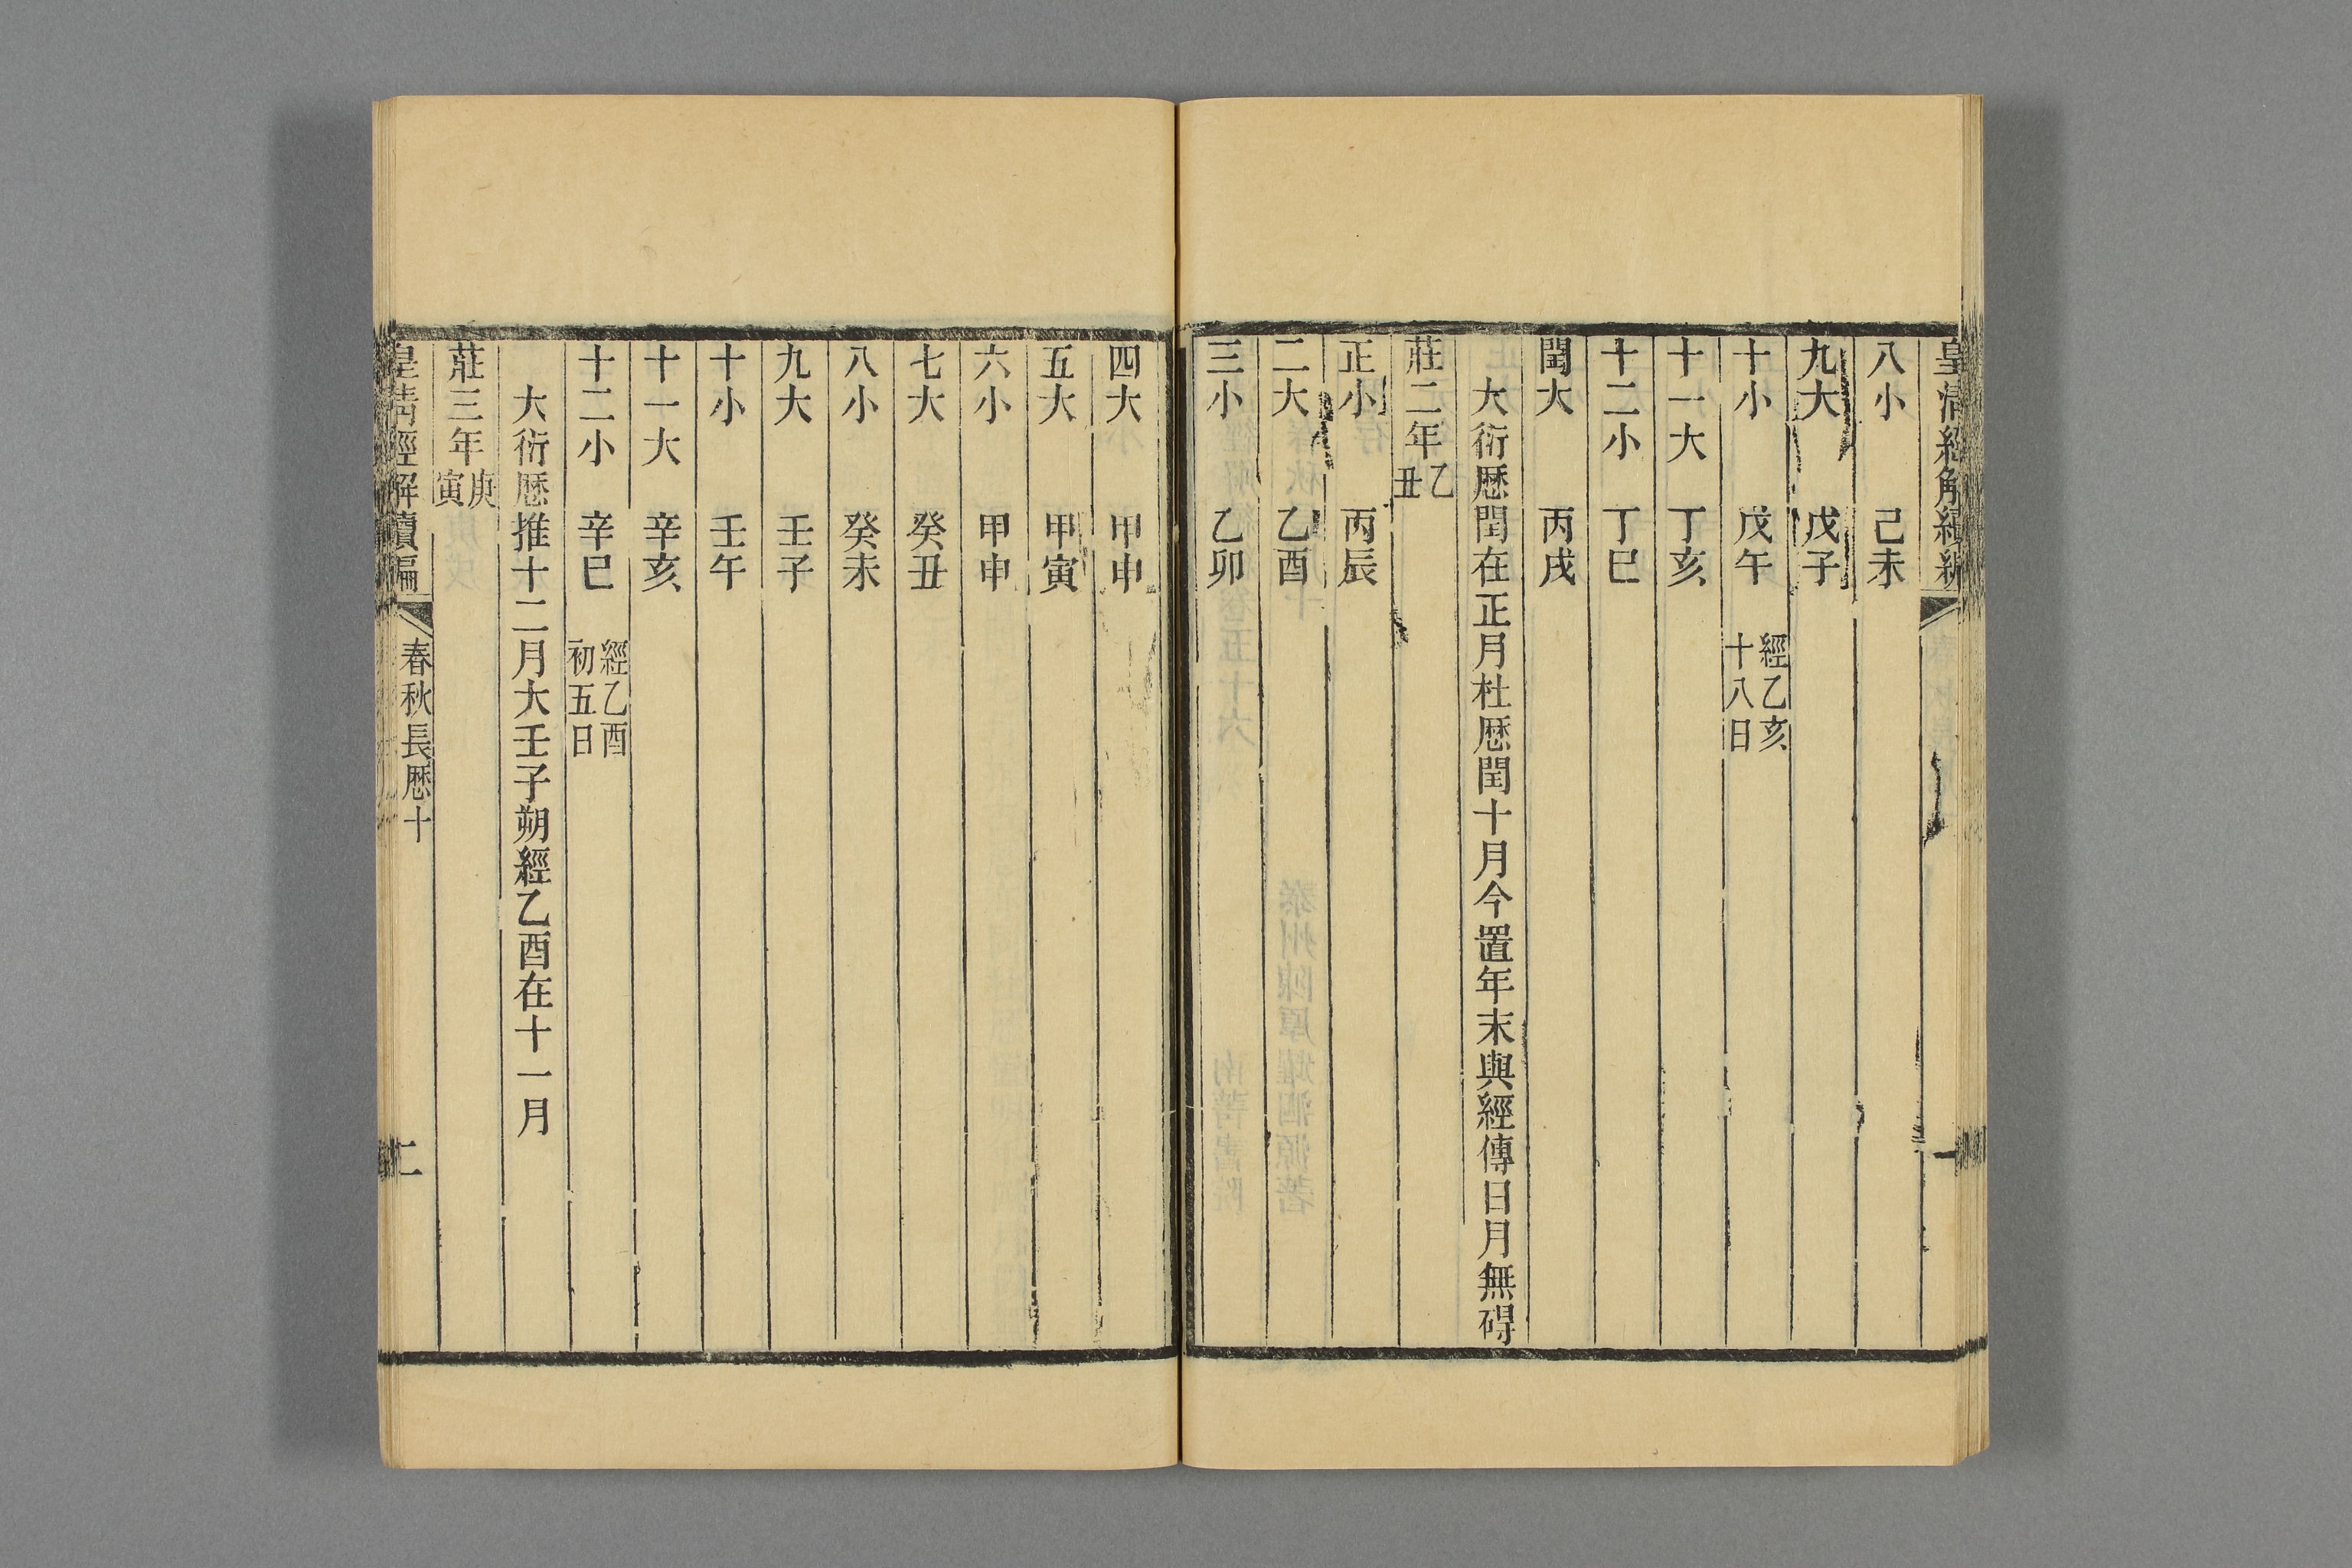 皇清經解續編
八小　己未
九大　戊子
十小　戊午　經乙亥十八日
十一大　丁亥
十二小　丁巳
閏大　丙戌
大衍厯閏在正月杜厯閏十月今置年末與經傳日月無碍
莊二年乙丑
正小　丙辰
二大　乙酉
三小　乙卯
四大　甲申
五大　甲寅
六小　甲申
七大　癸丑
八小　癸未
九大　壬子
十小　壬午
十一大　辛亥
十二小　辛巳　經乙酉初五日
大衍厯推十二月大壬子朔經乙酉在十一月
莊三年庚寅
皇清經解續編　春秋長厯十　二